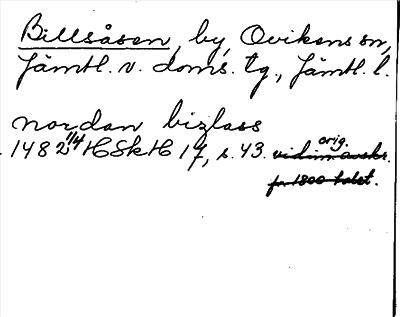 Billsåsen, by, Ovikens sn,
Jämtl. v. doms. tg., Jämtl. l.
nordan bizlass
1482 1/4 HSkH 17, s. 43. orig. vidim.avskr.
fr. 1800-talet.